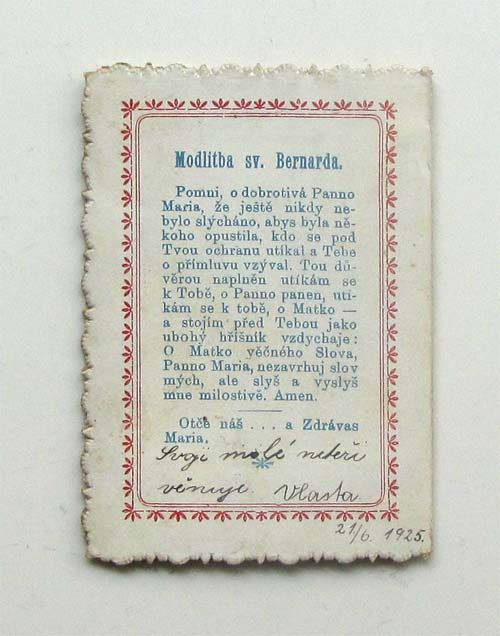 Modlitba sv. Bernarda.
Pomni, o dobrotivá Panno
Maria, že ještě nikdy ne-
bylo slýcháno, abys byla ně-
koho opustila, kdo se pod
Tvou ochranu utíkal a Tebe
o přímluvu vzýval. Tou dů-
věrou naplněn utíkám se
k Tobě, o Panno panen, utí-
kám se k tobě, o Matko —
a stojím před Tebou jako
ubohý hříšník vzdychaje:
O Matko věčného Slova,
Panno Maria, nezavrhuj slov
mých, ale slyš a vyslyš
mne milostivě. Amen.
Otče náš . . . a Zdrávas
Maria.
Svoji milé neteři
věnuje Vlasta
21/6. 1925.